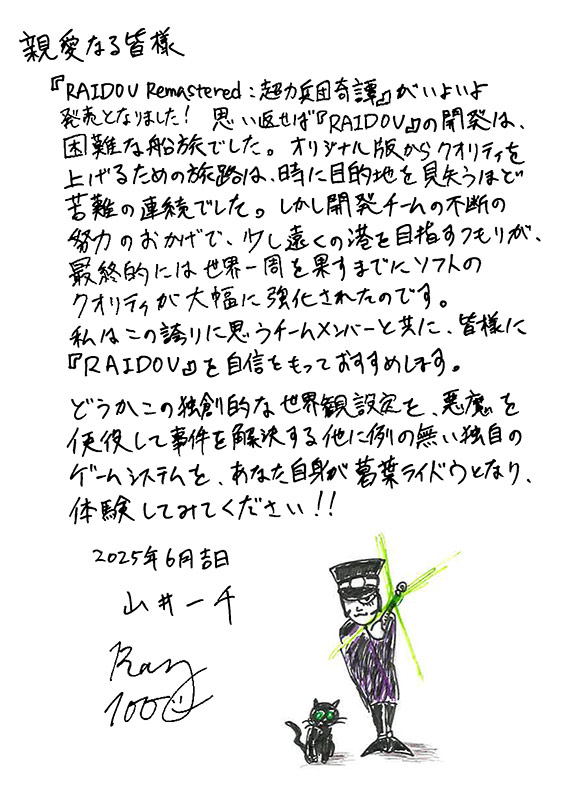 親愛なる皆様
『RAIDOU Remastered：超力兵団奇譚』がいよいよ
発売となりました！ 思い返せば『RAIDOU』の開発は、
困難な船旅でした。オリジナル版からクオリティを
上げるための旅路は、時に目的地を見失うほど
苦難の連続でした。しかし開発チームの不断の
努力のおかげで、少し遠くの港を目指すつもりが、
最終的には世界一周を果すまでにソフトの
クオリティが大幅に強化されたのです。
私はこの誇りに思うチームメンバーと共に、皆様に
『RAIDOU』を自信をもっておすすめします。
どうかこの独創的な世界観設定を、悪魔を
使役して事件を解決する他に例の無い独自の
ゲームシステムを、あなた自身が葛葉ライドウとなり、
体験してみてください！！
2025年6月吉日
山井一千